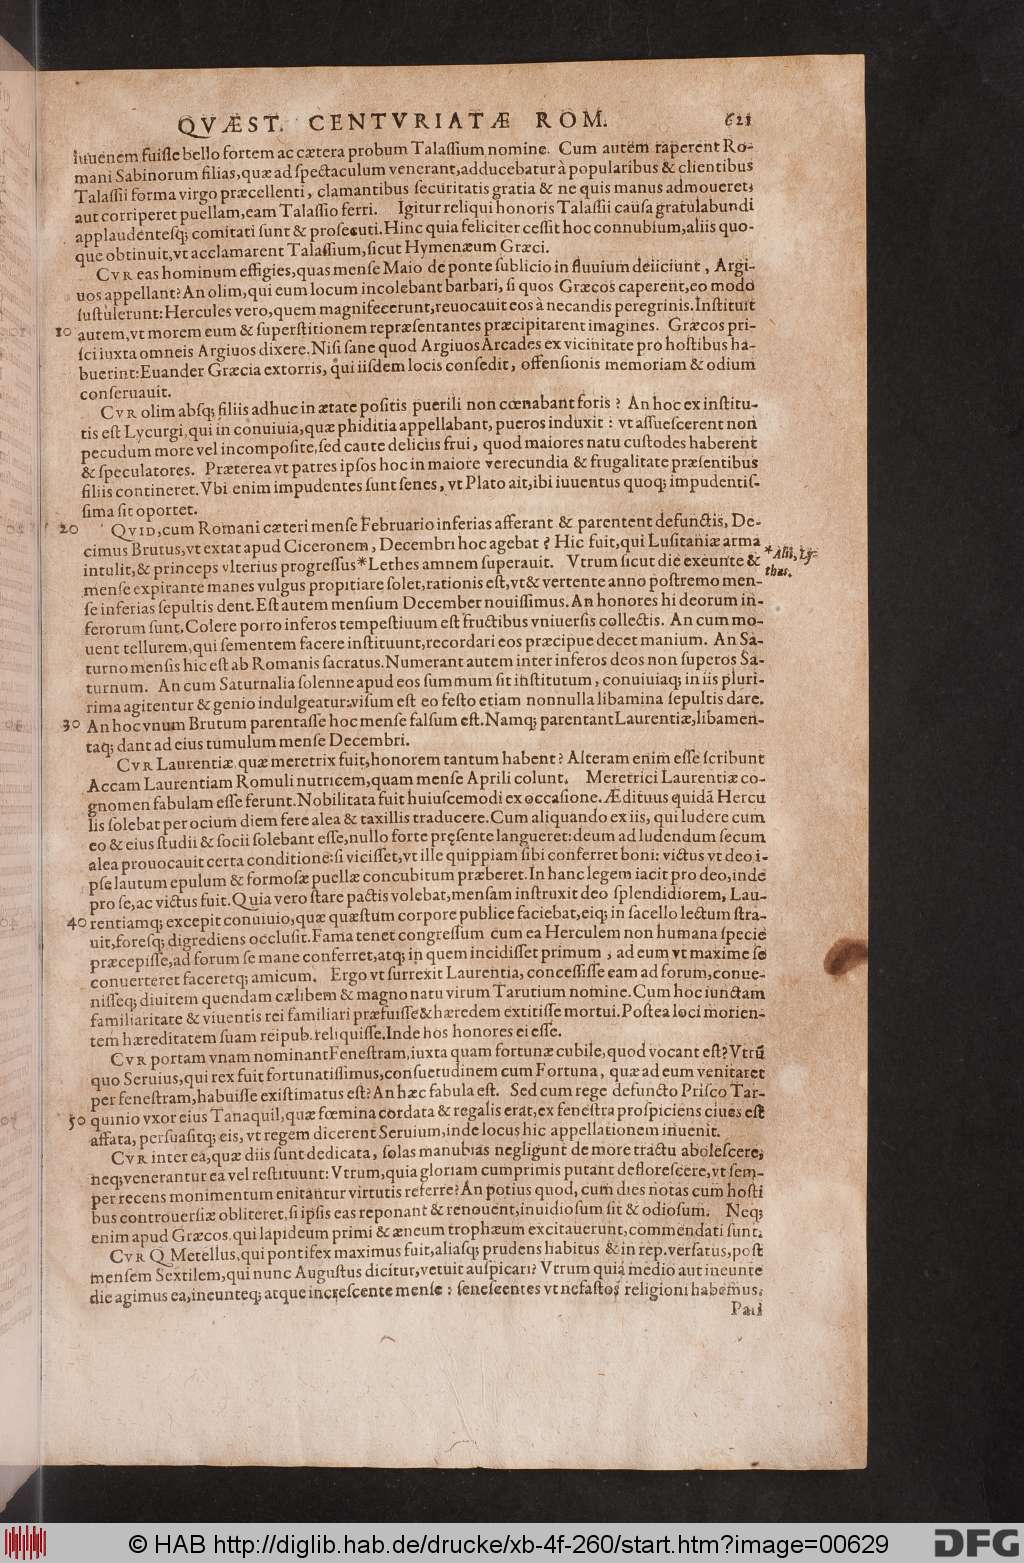 QVÆST. CENTVRIATÆ ROM. 621
iuuenem fuiſſe bello fortem ac cætera probum Talaſſium nomine. Cum autem raperent Ro-
mani Sabinorum filias, quæ ad ſpectaculum venerant, adducebatur à popularibus & clientibus
Talaſſii forma virgo præcellenti, clamantibus ſecuritatis gratia & ne quis manus admoueret,
aut corriperet puellam, eam Talaſſio ferri. Igitur reliqui honoris Talaſſii cauſa gratulabundi
applaudenteſq; comitati ſunt & proſecuti. Hinc quia feliciter ceſſit hoc connubium, aliis quo-
que obtinuit, vt acclamarent Talaſſium, ſicut Hymenæum Græci.
CVR eas hominum effigies, quas menſe Maio de ponte ſublicio in fluuium deiiciunt, Argi-
uos appellant? An olim, qui eum locum incolebant barbari, ſi quos Græcos caperent, eo modo
ſuſtulerunt: Hercules vero, quem magnifecerunt, reuocauit eos à necandis peregrinis. Inſtituit
10 autem, vt morem eum & ſuperſtitionem repræſentantes præcipitarent imagines. Græcos pri-
ſci iuxta omneis Argiuos dixere. Niſi ſane quod Argiuos Arcades ex vicinitate pro hoſtibus ha-
buerint: Euander Græcia extorris, qui iiſdem locis conſedit, offenſionis memoriam & odium
conſeruauit.
CVR olim abſq; filiis adhuc in ætate poſitis puerili non cœnabant foris? An hoc ex inſtitu-
tis eſt Lycurgi, qui in conuiuia, quæ phiditia appellabant, pueros induxit: vt aſſueſcerent non
pecudum more vel incompoſite, ſed caute deliciis frui, quod maiores natu cuſtodes haberent
& ſpeculatores. Præterea vt patres ipſos hoc in maiore verecundia & frugalitate præſentibus
filiis contineret. Vbi enim impudentes ſunt ſenes, vt Plato ait, ibi iuuentus quoq; impudentiſ-
ſima ſit oportet.
20 QVID, cum Romani cæteri menſe Februario inferias afferant & parentent defunctis, De-
cimus Brutus, vt extat apud Ciceronem, Decembri hoc agebat? Hic fuit, qui Luſitaniæ arma
intulit, & princeps vlterius progreſſus * Lethes amnem ſuperauit. Vtrum ſicut die exeunte &
* Alii, Ly-
thæs.
menſe expirante manes vulgus propitiare ſolet, rationis eſt, vt & vertente anno poſtremo men-
ſe inferias ſepultis dent. Eſt autem menſium December nouiſſimus. An honores hi deorum in-
ferorum ſunt. Colere porro inferos tempeſtiuum eſt fructibus vniuerſis collectis. An cum mo-
uent tellurem, qui ſementem facere inſtituunt, recordari eos præcipue decet manium. An Sa-
turno menſis hic eſt ab Romanis ſacratus. Numerant autem inter inferos deos non ſuperos Sa-
turnum. An cum Saturnalia ſolenne apud eos ſummum ſit inſtitutum, conuiuiaq; in iis pluri-
rima agitentur & genio indulgeatur: viſum eſt eo feſto etiam nonnulla libamina ſepultis dare.
30 An hoc vnum Brutum parentaſſe hoc menſe falſum eſt. Namq; parentant Laurentiæ, libamen-
taq; dant ad eius tumulum menſe Decembri.
CVR Laurentiæ quæ meretrix fuit, honorem tantum habent? Alteram enim eſſe ſcribunt
Accam Laurentiam Romuli nutricem, quam menſe Aprili colunt. Meretrici Laurentiæ co-
gnomen fabulam eſſe ferunt. Nobilitata fuit huiuſcemodi ex occaſione. Ædituus quidã Hercu
lis ſolebat per ocium diem fere alea & taxillis traducere. Cum aliquando ex iis, qui ludere cum
eo & eius ſtudii & ſocii ſolebant eſſe, nullo forte pręſente langueret: deum ad ludendum ſecum
alea prouocauit certa conditione: ſi viciſſet, vt ille quippiam ſibi conferret boni: victus vt deo i-
pſe lautum epulum & formoſæ puellæ concubitum præberet. In hanc legem iacit pro deo, inde
pro ſe, ac victus fuit. Quia vero ſtare pactis volebat, menſam inſtruxit deo ſplendidiorem, Lau-
40 rentiamq; excepit conuiuio, quæ quæſtum corpore publice faciebat, eiq; in ſacello lectum ſtra-
uit, foreſq; digrediens occluſit. Fama tenet congreſſum cum ea Herculem non humana ſpecie
præcepiſſe, ad forum ſe mane conferret, atq; in quem incidiſſet primum, ad eum vt maxime ſe
conuerteret faceretq; amicum. Ergo vt ſurrexit Laurentia, conceſſiſſe eam ad forum, conue-
niſſeq; diuitem quendam cælibem & magno natu virum Tarutium nomine. Cum hoc iunctam
familiaritate & viuentis rei familiari præfuiſſe & hæredem extitiſſe mortui. Poſtea loci morien-
tem hæreditatem ſuam reipub. reliquiſſe. Inde hos honores ei eſſe.
CVR portam vnam nominant Feneſtram, iuxta quam fortunæ cubile, quod vocant eſt? Vtrũ
quo Seruius, qui rex fuit fortunatiſſimus, conſuetudinem cum Fortuna, quæ ad eum venitaret
per feneſtram, habuiſſe exiſtimatus eſt? An hæc fabula eſt. Sed cum rege defuncto Priſco Tar-
50 quinio vxor eius Tanaquil, quæ fœmina cordata & regalis erat, ex feneſtra proſpiciens ciues eſt
affata, perſuaſitq; eis, vt regem dicerent Seruium, inde locus hic appellationem inuenit.
CVR inter ea, quæ diis ſunt dedicata, ſolas manubias negligunt de more tractu aboleſcere,
neq; venerantur ea vel reſtituunt: Vtrum, quia gloriam cumprimis putant defloreſcere, vt ſem-
per recens monimentum enitantur virtutis referre? An potius quod, cum dies notas cum hoſti
bus controuerſiæ obliteret, ſi ipſis eas reponant & renouent, inuidioſum ſit & odioſum. Neq;
enim apud Græcos, qui lapideum primi & æneum trophæum excitauerunt, commendati ſunt.
CVR Q. Metellus, qui pontifex maximus fuit, aliaſq; prudens habitus & in rep. verſatus, poſt
menſem Sextilem, qui nunc Auguſtus dicitur, vetuit auſpicari? Vtrum quia medio aut ineunte
die agimus ea, ineunteq; atque increſcente menſe: ſeneſcentes vt nefaſtos religioni habemus.
Pari
© HAB http://diglib.hab.de/drucke/xb-4f-260/start.htm?image=00629
DFG